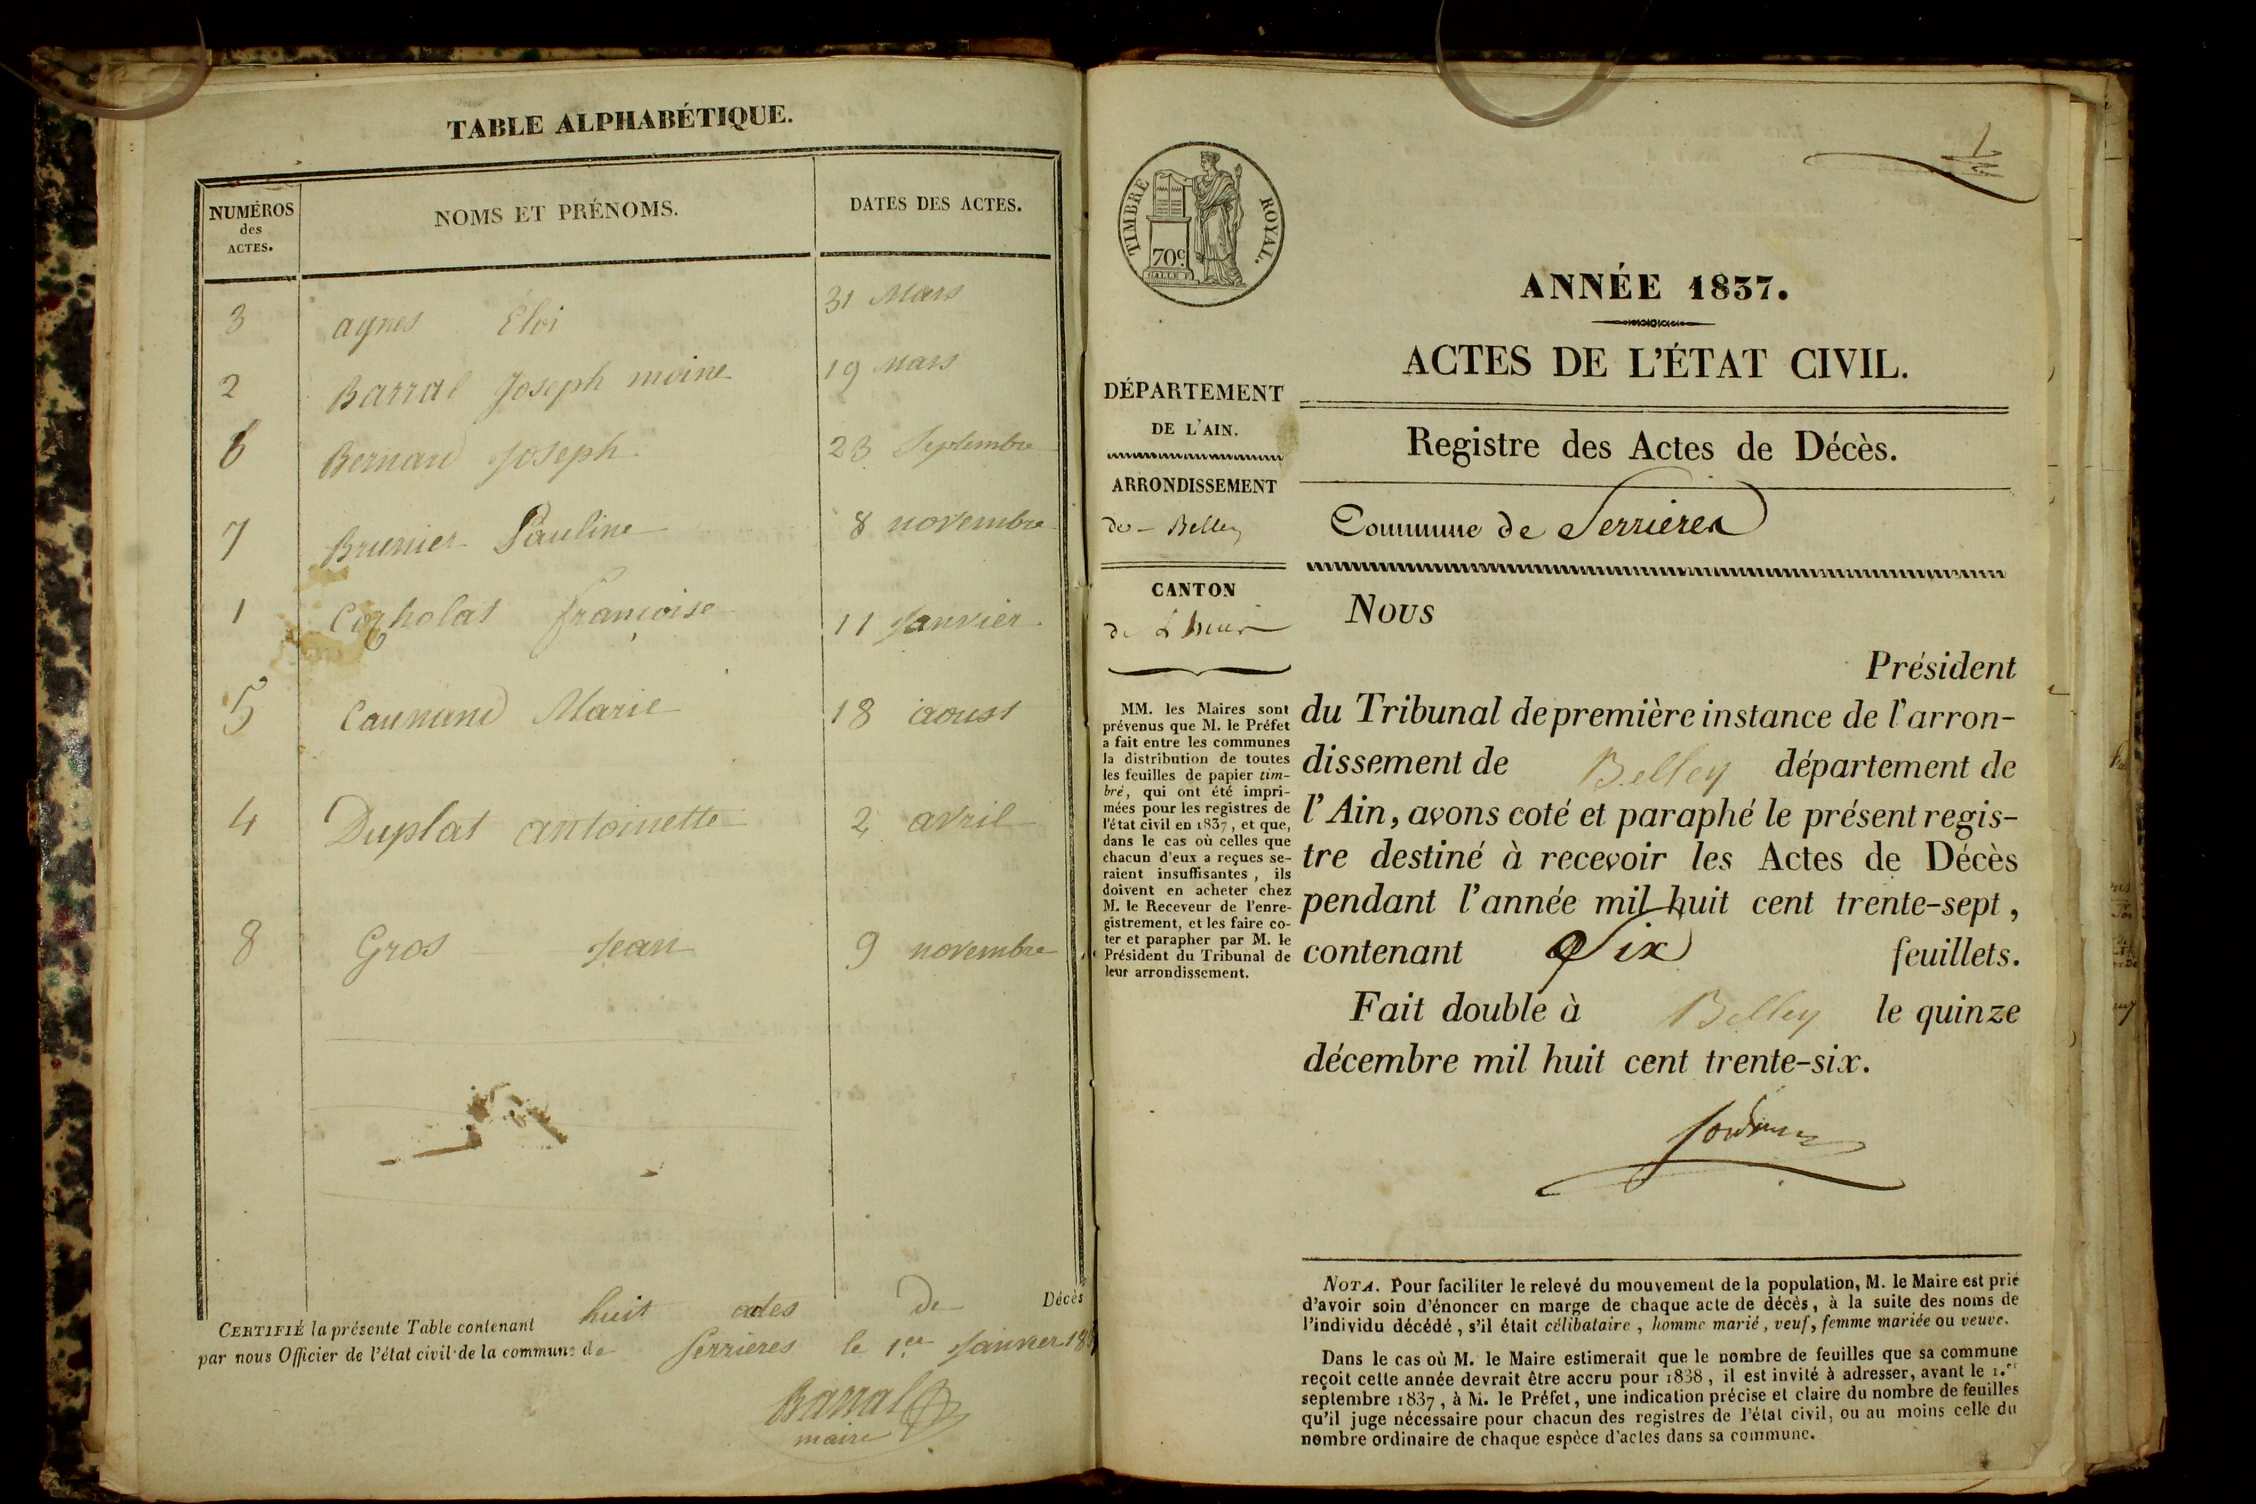 TABLE ALPHABÉTIQUE.
NUMÉROS des ACTES. NOMS ET PRÉNOMS. DATES DES ACTES.
3 agnes Éloi 31 Mars
2 Barral Joseph moine 19 Mars
6 Bernard Joseph 23 Septembre
7 Brunier Pauline 8 novembre
1 Françoise 11 Janvier
5 Caunand Marie 18 aoust
4 Duplat antoinette 2 avril
8 Gros Jean 9 novembre
CERTIFIÉ la présente Table contenant huit actes de Décès
par nous Officier de l'état civil de la commune de Serrieres le 1.er Janvier 183
Barral
maire
1
TIMBRE ROYAL.
70c
ANNÉE 1837.
ACTES DE L'ÉTAT CIVIL.
Registre des Actes de Décès.
Commune de Serrieres
DÉPARTEMENT
DE L'AIN.
ARRONDISSEMENT
de Belley
CANTON
de Lhuis
MM. les Maires sont
prévenus que M. le Préfet
a fait entre les communes
la distribution de toutes
les feuilles de papier tim-
bré, qui ont été impri-
mées pour les registres de
l'état civil en 1837, et que,
dans le cas où celles que
chacun d'eux a reçues se-
raient insuffisantes, ils
doivent en acheter chez
M. le Receveur de l'enre-
gistrement, et les faire co-
ter et parapher par M. le
Président du Tribunal de
leur arrondissement.
NOUS
Président
du Tribunal de première instance de l'arron-
dissement de Belley département de
l'Ain, avons coté et paraphé le présent regis-
tre destiné à recevoir les Actes de Décès
pendant l'année mil huit cent trente-sept,
contenant Six feuillets.
Fait double à Belley le quinze
décembre mil huit cent trente-six.
NOTA. Pour faciliter le relevé du mouvement de la population, M. le Maire est prié
d'avoir soin d'énoncer en marge de chaque acte de décès, à la suite des noms de
l'individu décédé, s'il était célibataire, homme marié, veuf, femme mariée ou veuve.
Dans le cas où M. le Maire estimerait que le nombre de feuilles que sa commune
reçoit cette année devrait être accru pour 1838, il est invité à adresser, avant le 1.er
septembre 1837, à M. le Préfet, une indication précise et claire du nombre de feuilles
qu'il juge nécessaire pour chacun des registres de l'état civil, ou au moins celle du
nombre ordinaire de chaque espèce d'actes dans sa commune.